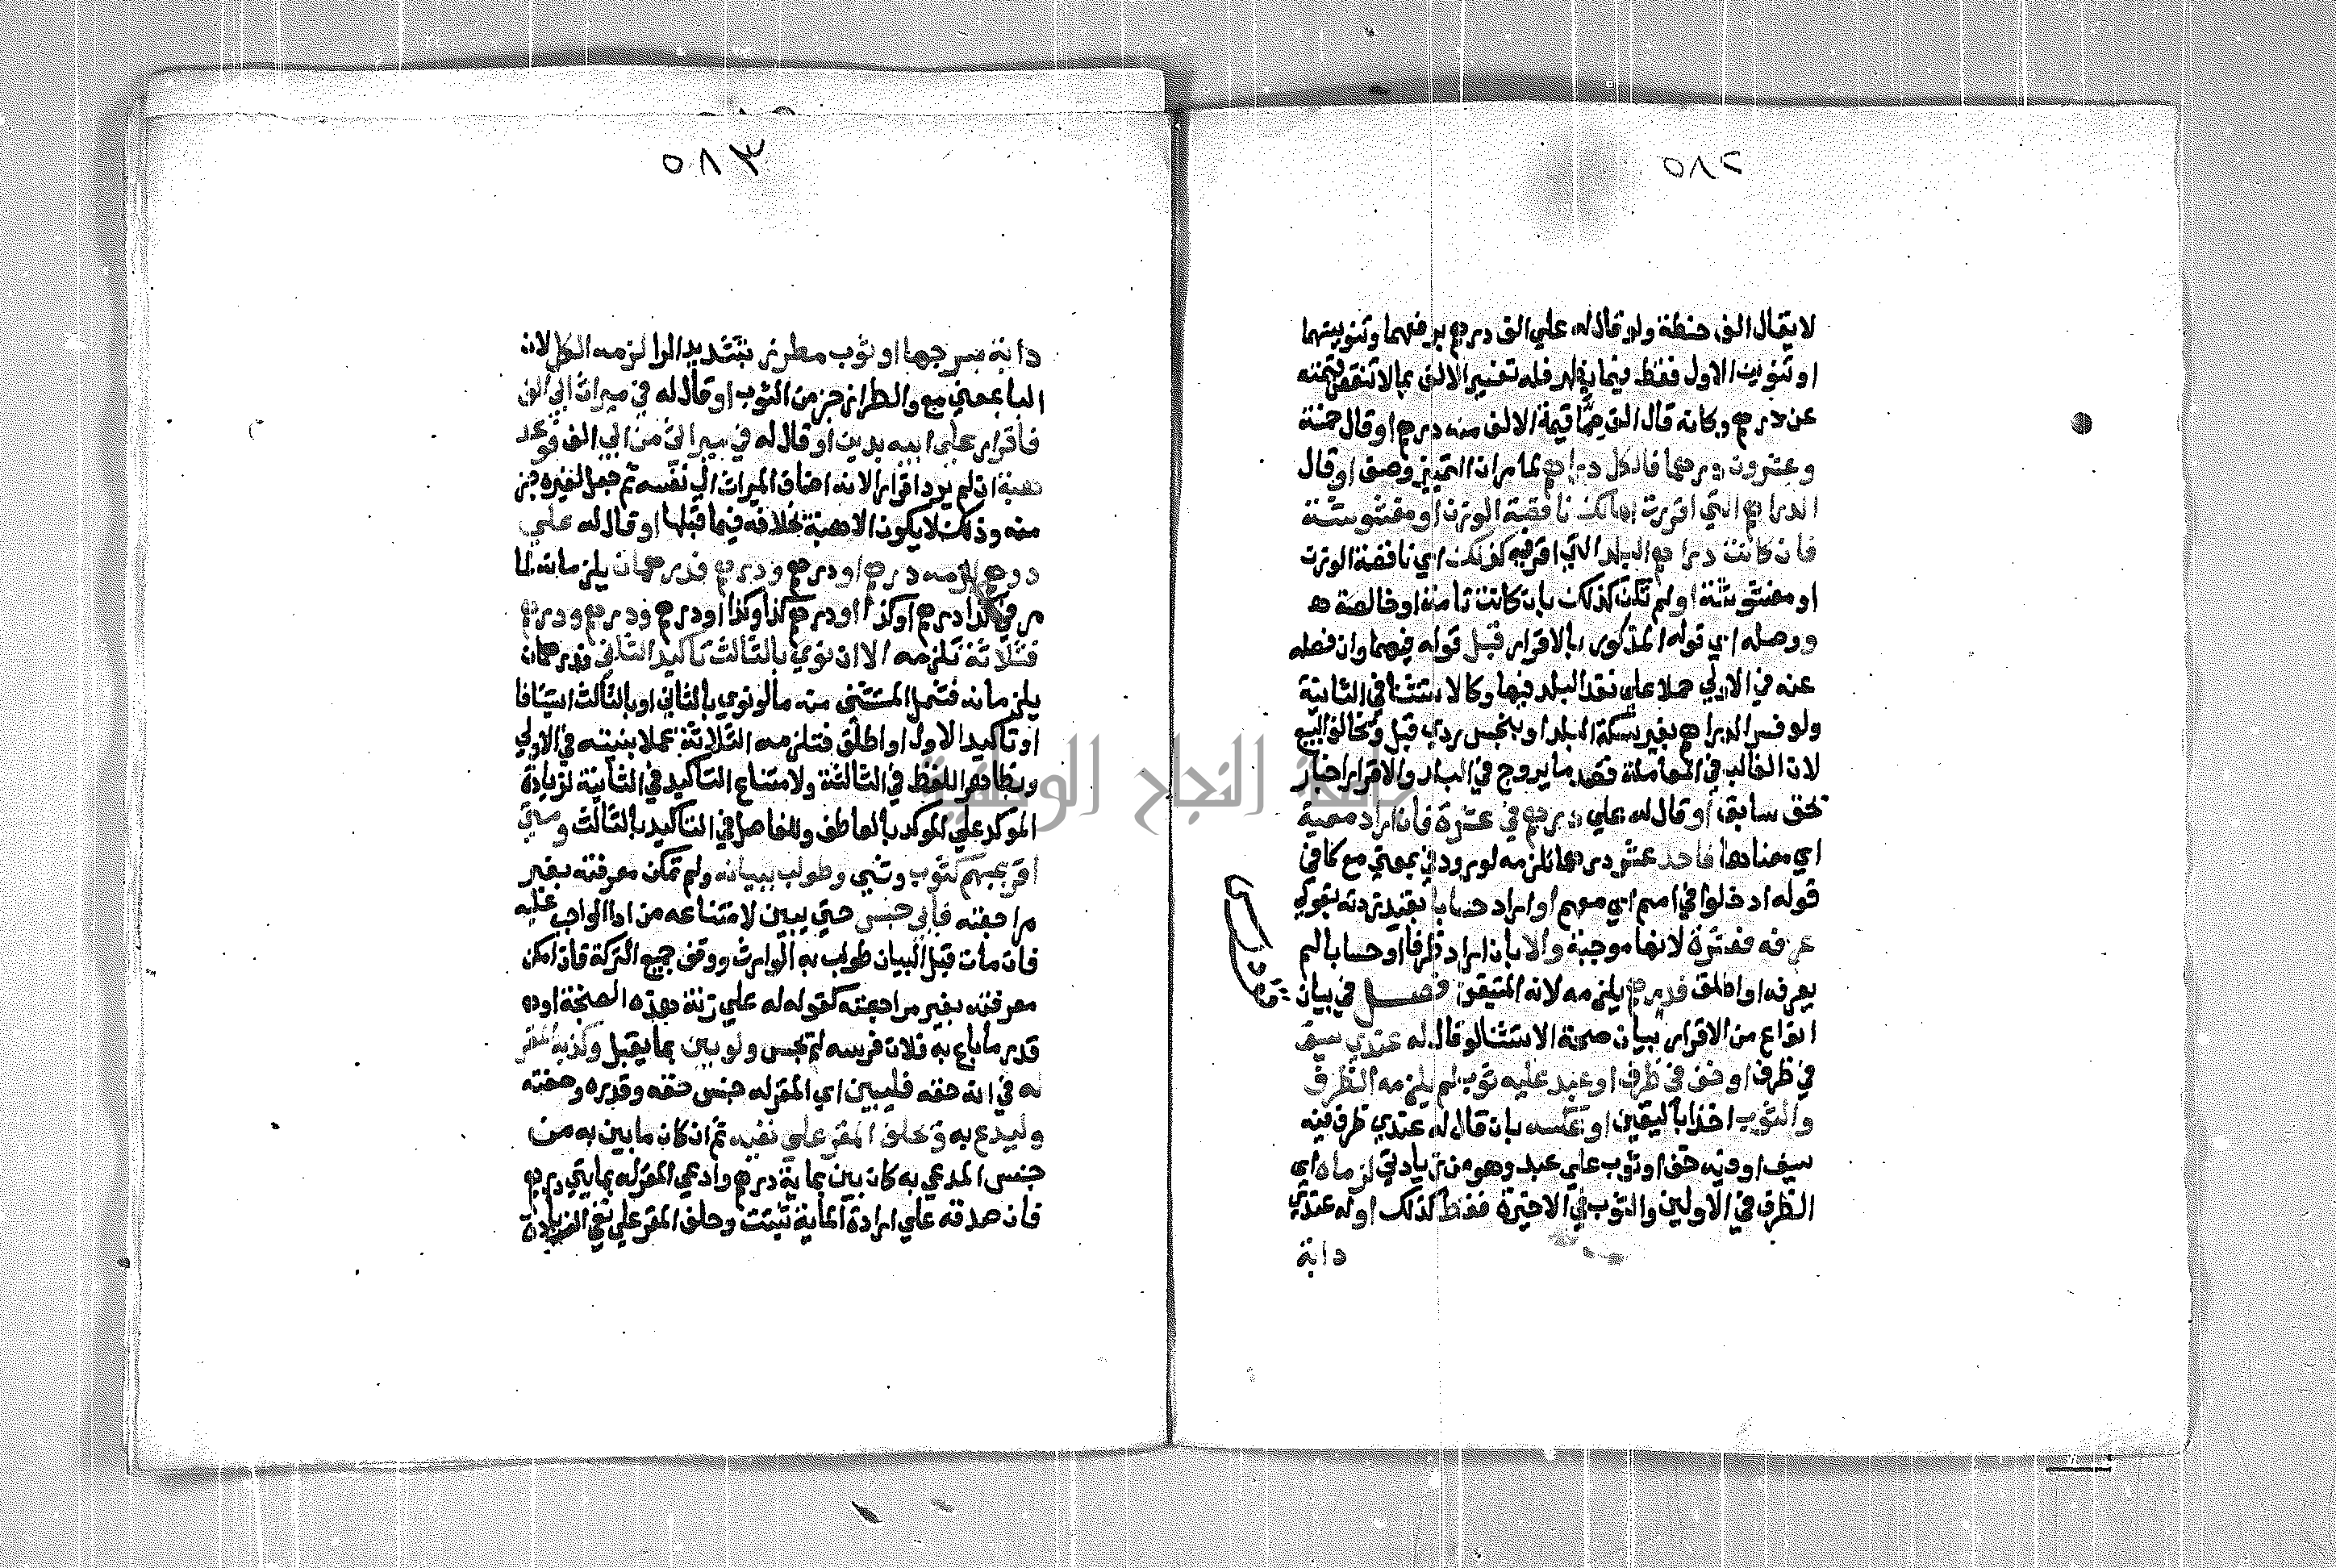 ٥٨٢
لا يقال الف حنطة ولو قال له علي الف درهم برفعهما وتنوينهما
او تنوين الاول فقط فيما يظهر فله تفسير الالف بما لا تنقص قيمته
عن درهم وكانه قال الف مما قيمة الالف منه درهم او قال خمسة
وعشرون درهما فالكل دراهم لما مر ان التمييز وصف او قال
الدراهم التي اقررت بها لك ناقصة الوزن او مغشوشة
فان كانت دراهم البلد الذي اقر فيه كذلك اي ناقصة الوزن
او مغشوشة او لم تكن كذلك بان كانت تامة او خالصة
ووصله اي قوله المذكور بالاقرار قبل قوله فيهما وان فصله
عنه في الاولي حملا علي نقد البلد فيها وكالاستثنا في الثانية
ولو فسر الدراهم بغير سكة البلد او بجنس ردي قبل وتخالف البيع
لان الغالب في المعاملة قصد ما يروج في البلد والاقرار اخبار
بحق سابق او قال له علي درهم في عشرة فان اراد معية
اي معناها فاحد عشر درهما تلزمه لورود في بمعني مع كما في
قوله ادخلوا في امم اي معهم او اراد حسابا بقيد زدته بقولي
عرفه فعشرة لانها موجبة والا بان اراد ظرفا او حسابا لم
يعرفه او اطلق فدرهم يلزمه لانه المتيقن فصل في بيان
انواع من الاقرار ببيان صحة الاستثنا لو قال له عندي سيف
في ظرف او خف في ظرف او عبد عليه ثوب لم يلزمه الظرف
والثوب اخذا باليقين او عكسه بان قال له عندي ظرف فيه
سيف او فيه خف او ثوب علي عبد وهو من زيادتي لزماه اي
الظرف في الاولين والثوب في الاخيرة فقط كذلك او له عندي
دابة
٥٨٣
دابة بسرجها او ثوب مطرز بتشديد الرا لزمه الكل لان
البا بمعني مع والطراز جز من الثوب او قال له في ميراث ابي الف
فاقرار علي ابيه بدين او قال له في ميراثي من ابي الف فوعد
هبة ان لم يرد اقرارا لانه اضاف الميراث الي نفسه ثم جعل لغيره جز
منه وذلك لا يكون الا هبة بخلافه فيما قبلها او قال له علي
درهم لزمه درهم او درهم ودرهم فدرهمان يلزمانه لما
مر في كذا درهم او كذا او درهم كذا وكذا او درهم ودرهم ودرهم
فثلاثة تلزمه الا ان نوي بالثالث تاكيد الثاني فدرهمان
يلزمانه فشمل المستثني منه ما لو نوي بالثاني او بالثالث استينافا
او تاكيد الاول او اطلق فتلزمه الثلاثة عملا بنيته في الاولي
وبظاهر اللفظ في الثالثة ولامتناع التاكيد في الثانية لزيادة
الموكد علي الموكد بالعاطف وللفاصل في التاكيد بالثالث ومتي
اقر بمبهم كثوب وشي وطولب ببيانه ولم تمكن معرفته بغير
مراجعته فابي حبس حتي يبين لامتناعه من ادا الواجب عليه
فان مات قبل البيان طولب به الوارث ووقف جميع التركة فان امكن
معرفته بغير مراجعته كقوله له علي زنة هذه الصنجة او
قدر ما باع به فلان فرسه لم يحبس ولو بين بما يقبل وكذبه المقر
له في انه حقه فليبين اي المقر له جنس حقه وقدره وصفته
وليدع به ويحلف المقر علي نفيه ثم ان كان ما بين به من
جنس المدعي به كان بين بماية درهم وادعي المقر له بمايتي درهم
فان صدقه علي ارادة الماية ثبتت وحلف المقر علي نفي الزيادة
جامعة النجاح الوطنية